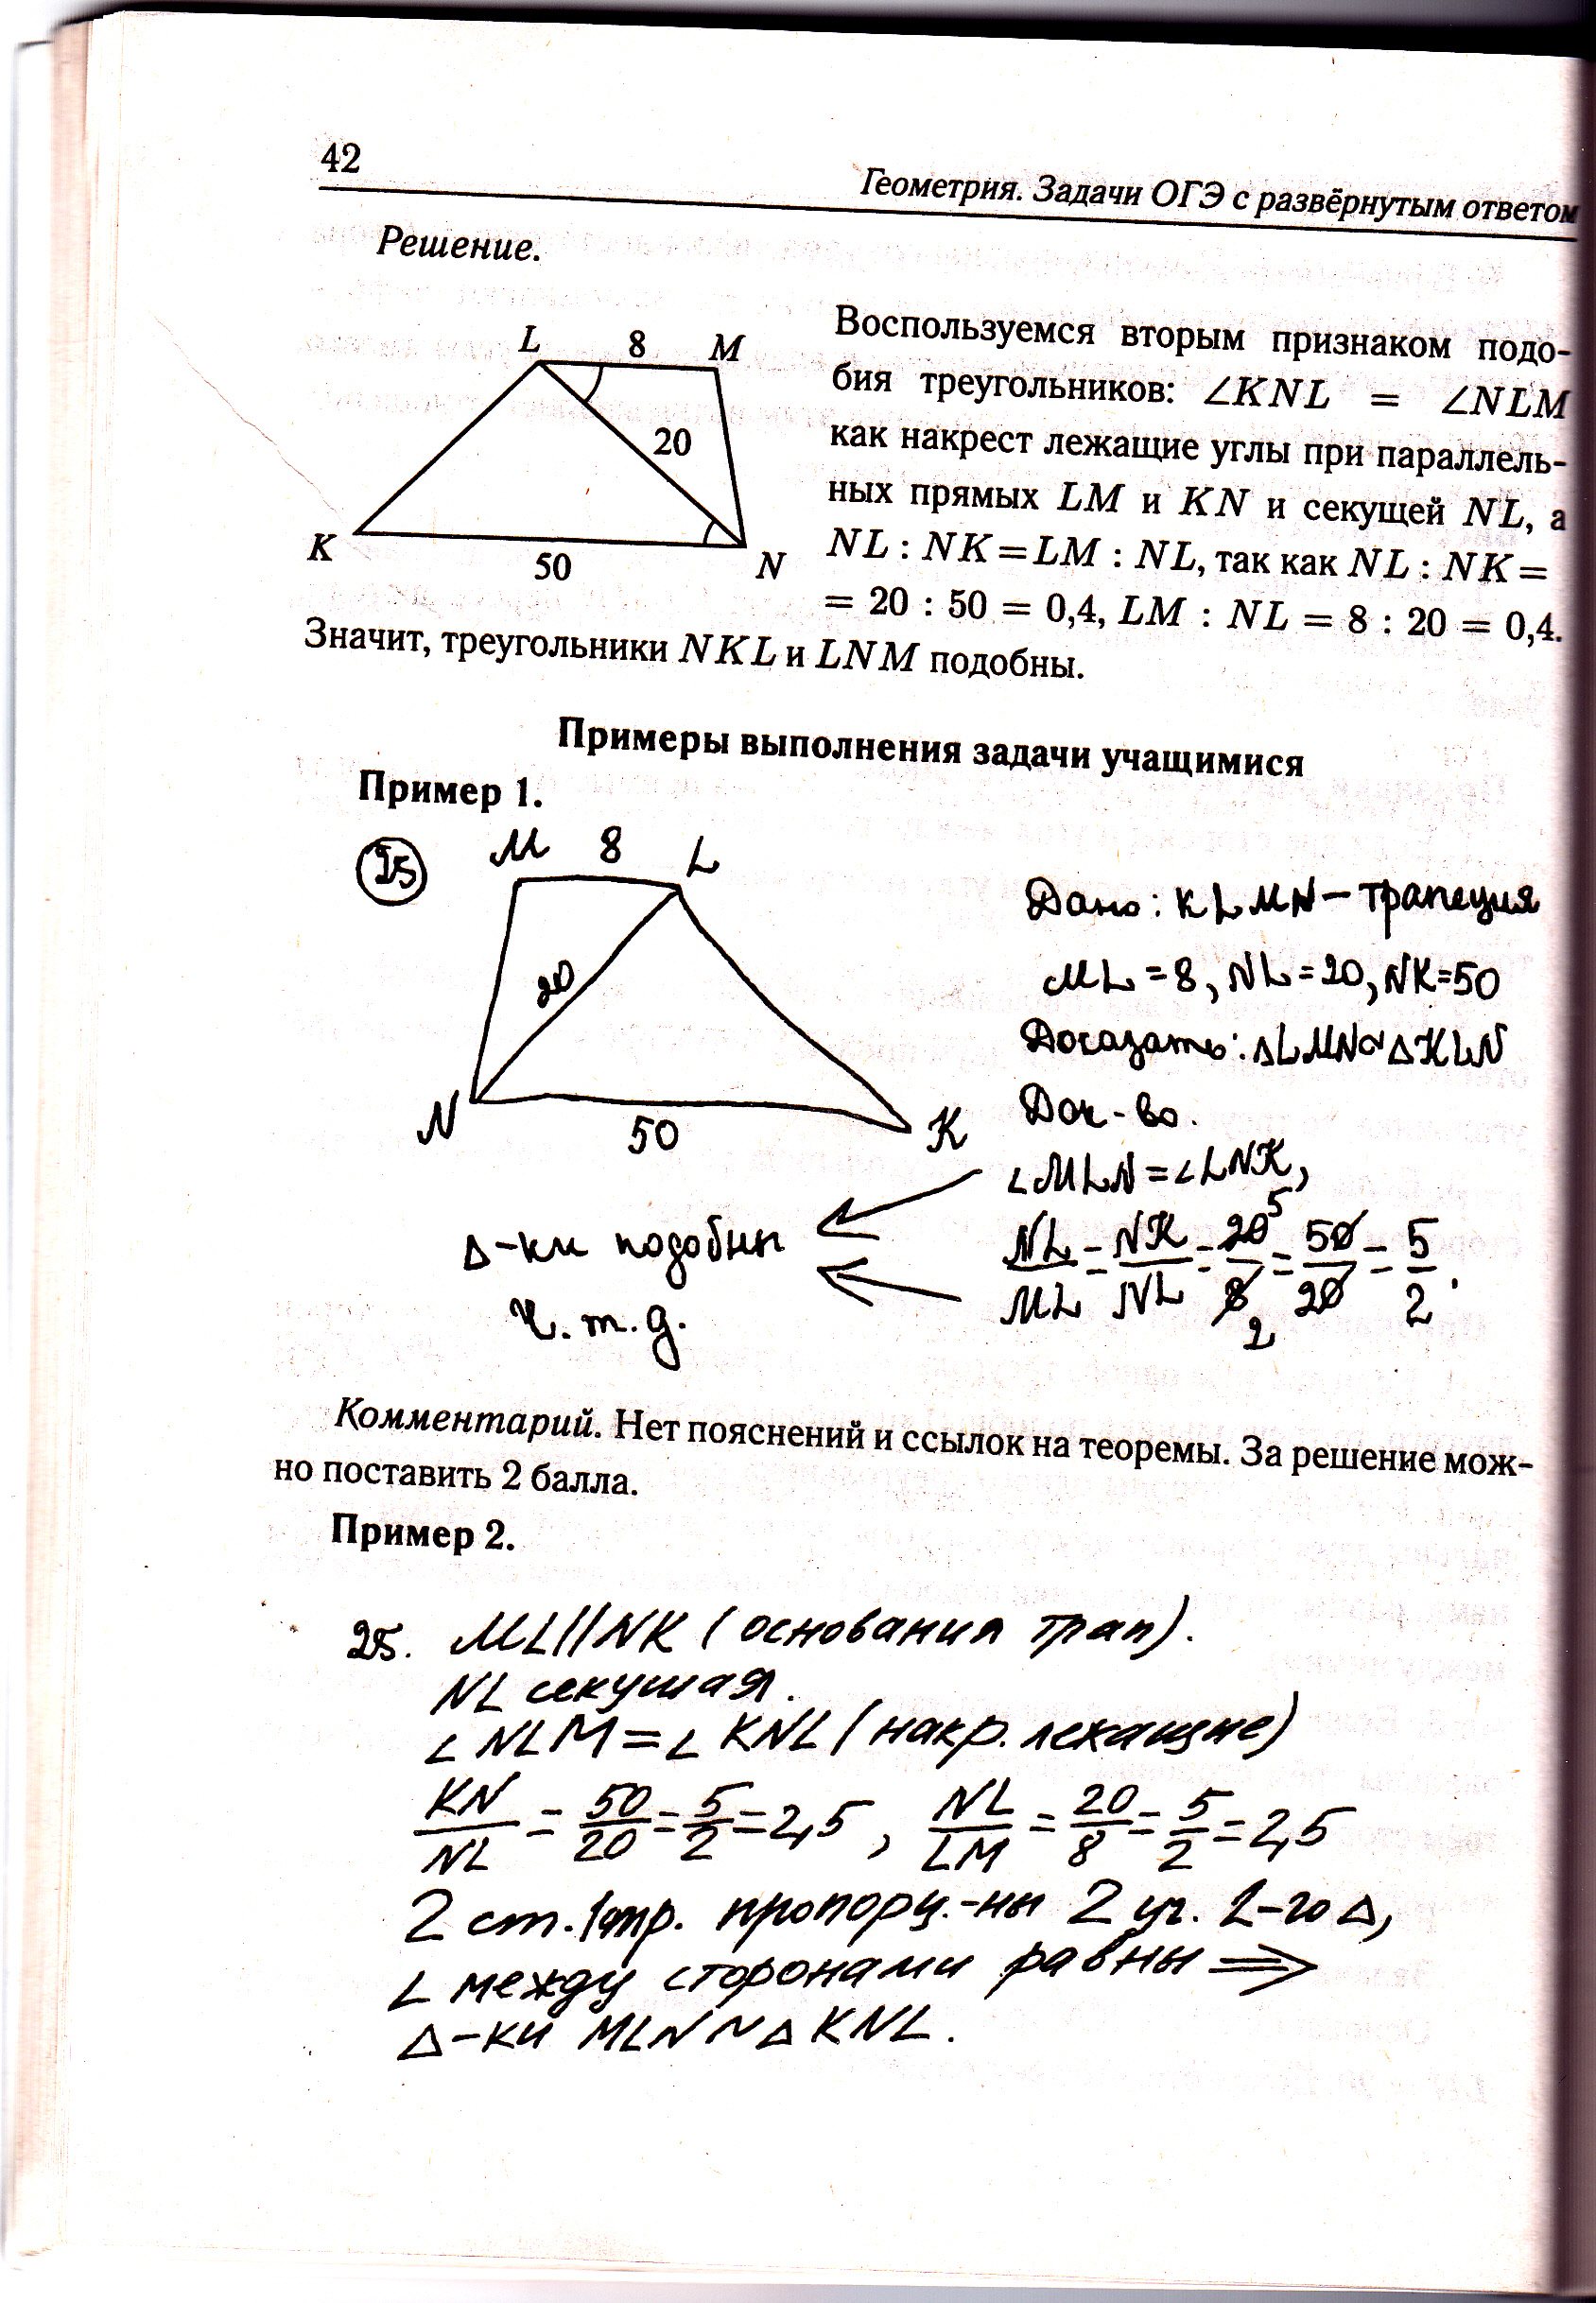 42
Геометрия. Задачи ОГЭ с развёрнутым ответом
Решение.
L 8 M
20
K 50 N
Воспользуемся вторым признаком подо-
бия треугольников: ∠KNL = ∠NLM
как накрест лежащие углы при параллель-
ных прямых LM и KN и секущей NL, а
NL : NK = LM : NL, так как NL : NK =
= 20 : 50 = 0,4, LM : NL = 8 : 20 = 0,4.
Значит, треугольники NKL и LNM подобны.
Примеры выполнения задачи учащимися
Пример 1.
25
M 8 L
20
N 50 K
Дано: KLMN – трапеция
ML = 8, NL = 20, NK = 50
Доказать: ΔLMN ∾ ΔKLN
Док-во.
∠MLN = ∠LNK,
NL/ML = NK/NL = 20/8 = 50/20 = 5/2.
5
2
Δ-ки подобны
Ч.т.д.
Комментарий. Нет пояснений и ссылок на теоремы. За решение мож-
но поставить 2 балла.
Пример 2.
25. ML||NK (основания трап).
NL секущая.
∠NLM = ∠KNL (накр. лежащие)
KN/NL = 50/20 = 5/2 = 2,5 , NL/LM = 20/8 = 5/2 = 2,5
2 ст. 1 тр. пропорц.-ны 2-го Δ,
∠ между сторонами равны ⟹
Δ-ки MLN ~ Δ KNL.